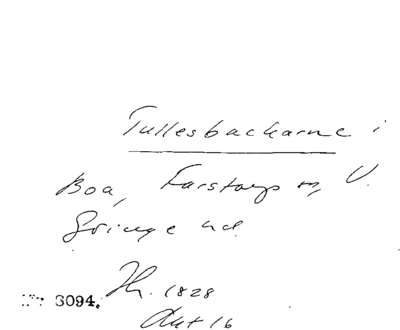 Tullesbackarne i
Boa, Farstorps sn, V.
Göinge hd.
Th. 1828
Akt 16
Nr 3094.